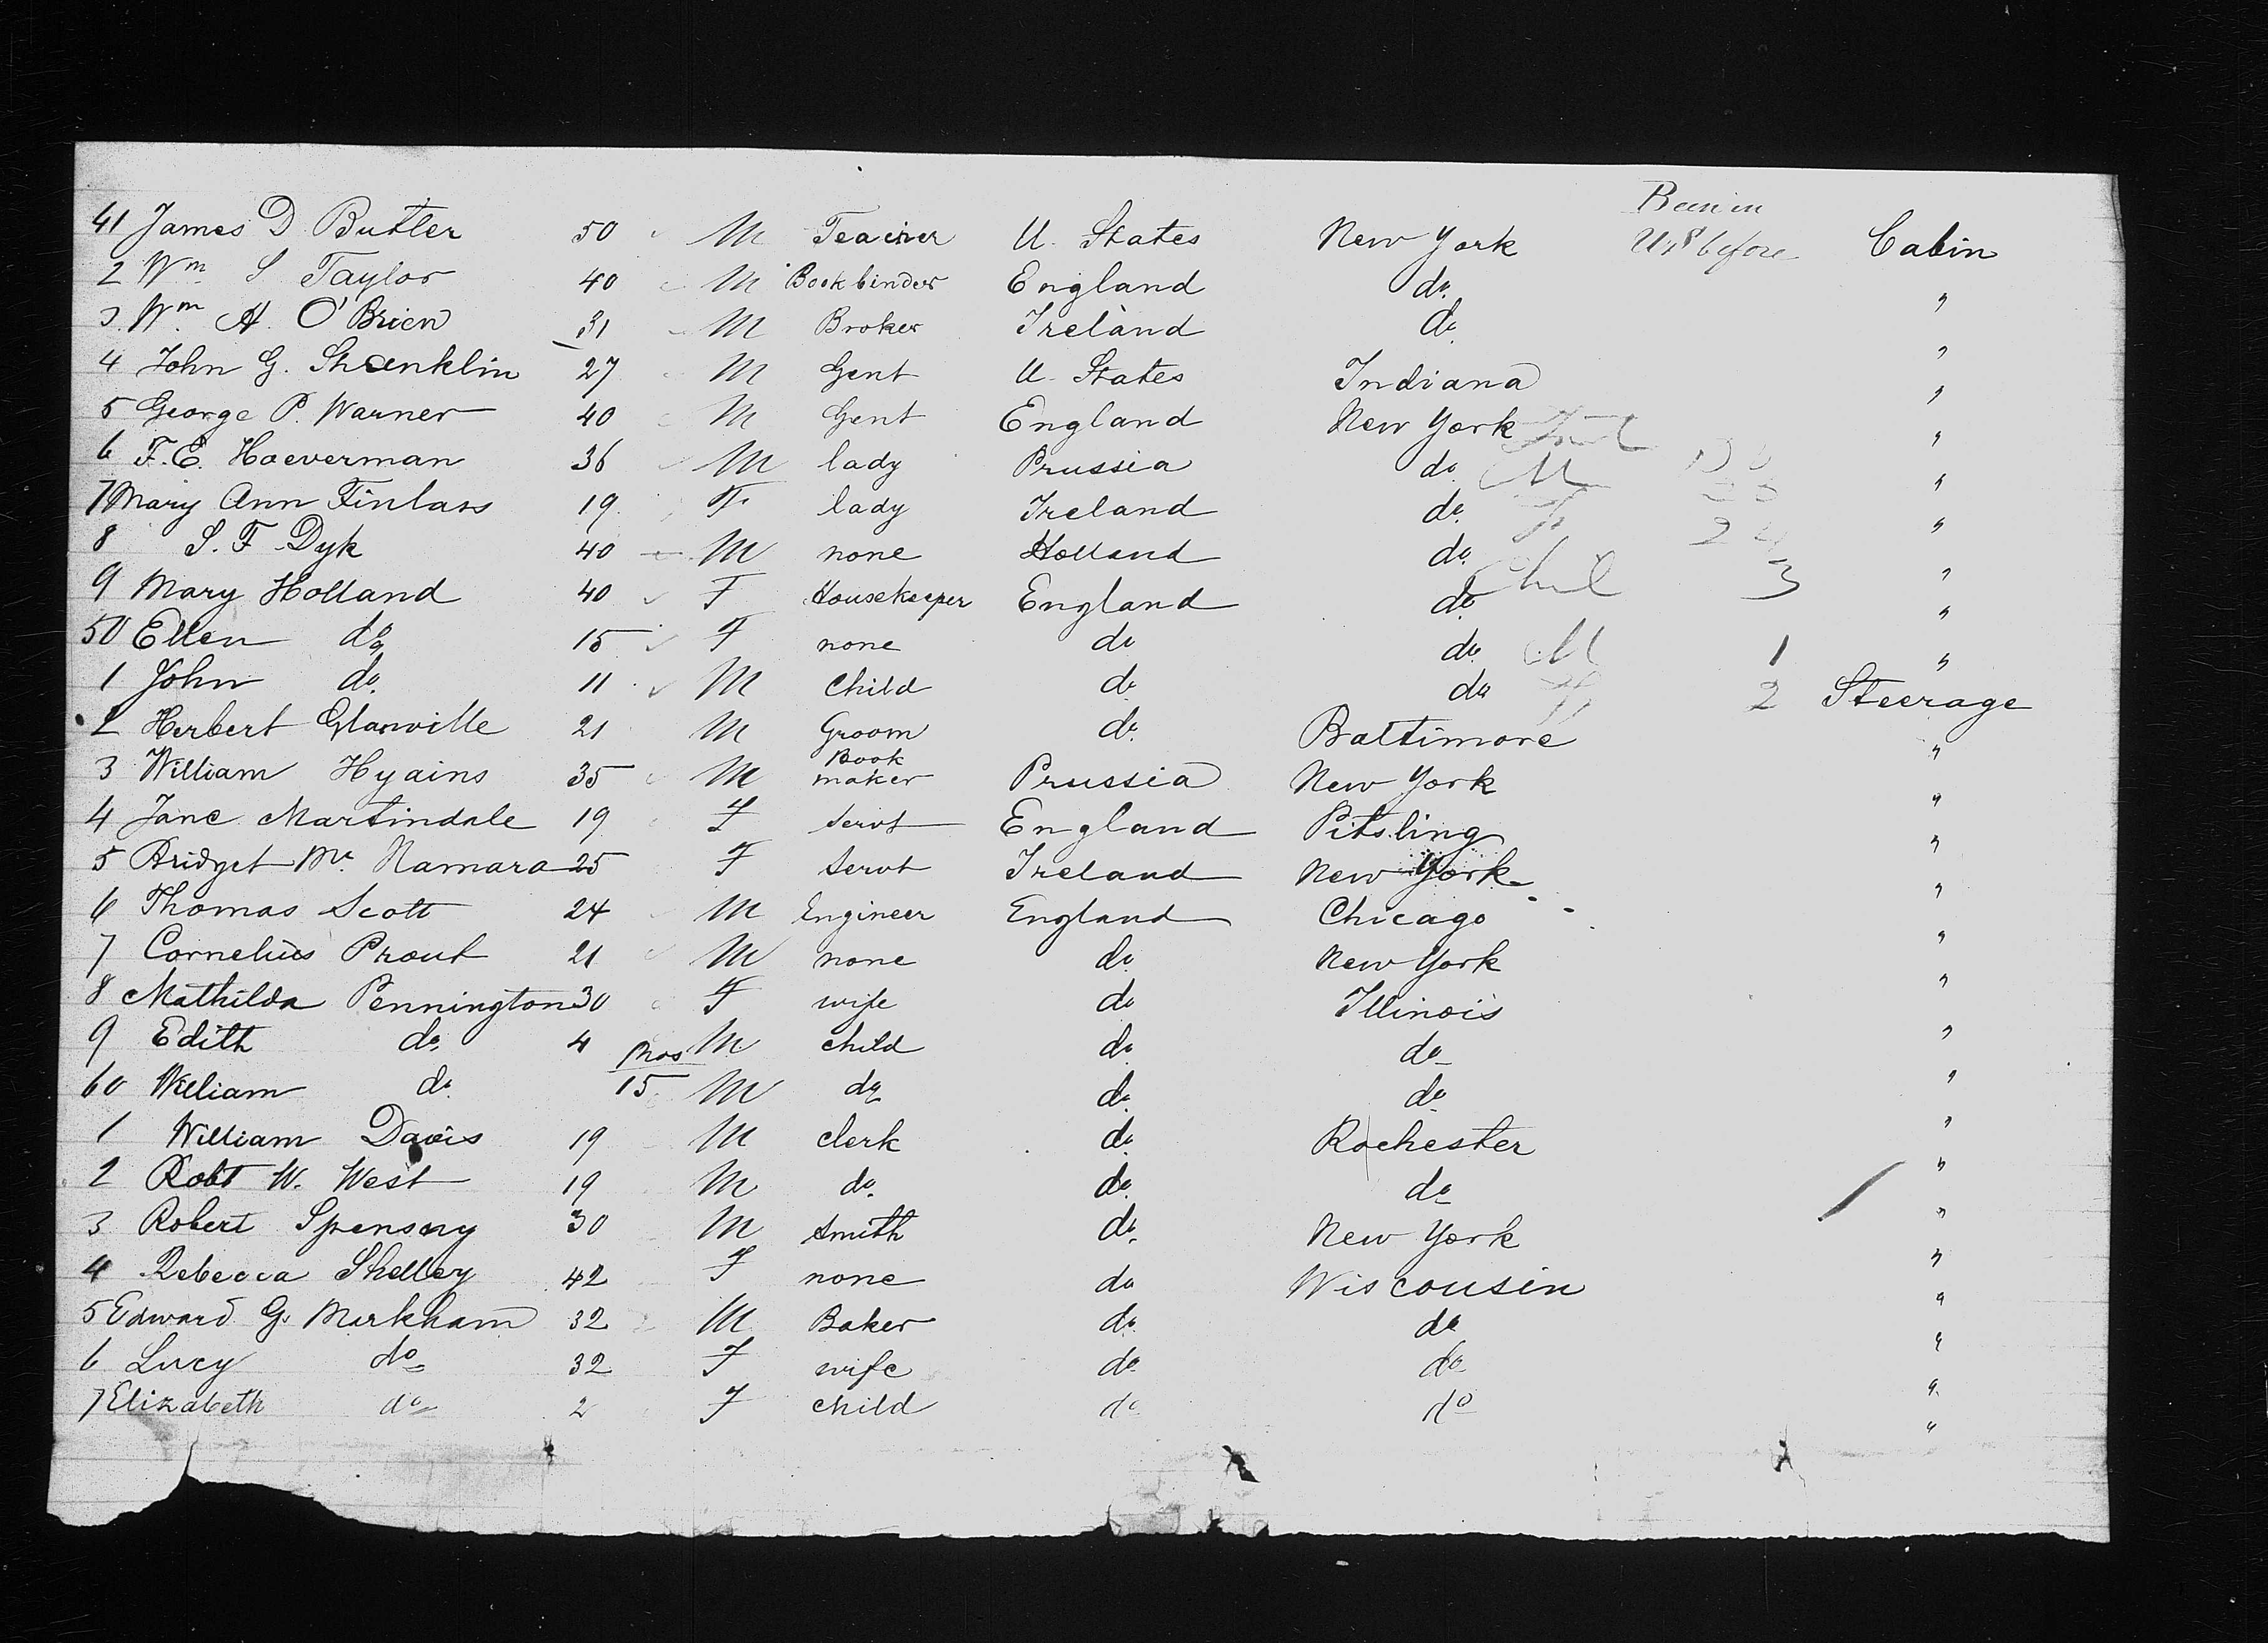 Been in
41 James D Butler 50 M Teacher U. States New York U.S before Cabin
2 Wm S Taylor 40 M Bookbinder England do "
3 Wm A. O'Brien 31 M Broker Ireland do "
4 John G. Shanklin 27 M Gent U. States Indiana "
5 George P. Warner 40 M Gent England New York "
6 F. E. Hoeverman 36 M lady Prussia do M "
7 Mary Ann Finlass 19 F lady Ireland do "
8 S. F Dyk 40 M none Holland do "
9 Mary Holland 40 F Housekeeper England do Chil 3 "
50 Ellen do 15 F none do do M 1 "
1 John do 11 M Child do do 2 Steerage
2 Herbert Glanville 21 M Groom do Baltimore "
3 William Hyains 35 M Book maker Prussia New York "
4 Jane Martindale 19 F Servt England Pitsling "
5 Bridget Mc Namara 25 F Servt Ireland New York "
6 Thomas Scott 24 M Engineer England Chicago "
7 Cornelius Prout 21 M none do New York "
8 Mathilda Pennington 30 F wife do Illinois "
9 Edith do 4 M child do do "
60 William do mos 15 M do do do "
1 William Davis 19 M clerk do Rochester "
2 Robt W. West 19 M do do do "
3 Robert Spensny 30 M Smith do New York "
4 Rebecca Shelley 42 F none do Wiscousin "
5 Edward G. Markham 32 M Baker do do "
6 Lucy do 32 F wife do do "
7 Elizabeth do 2 F child do do "